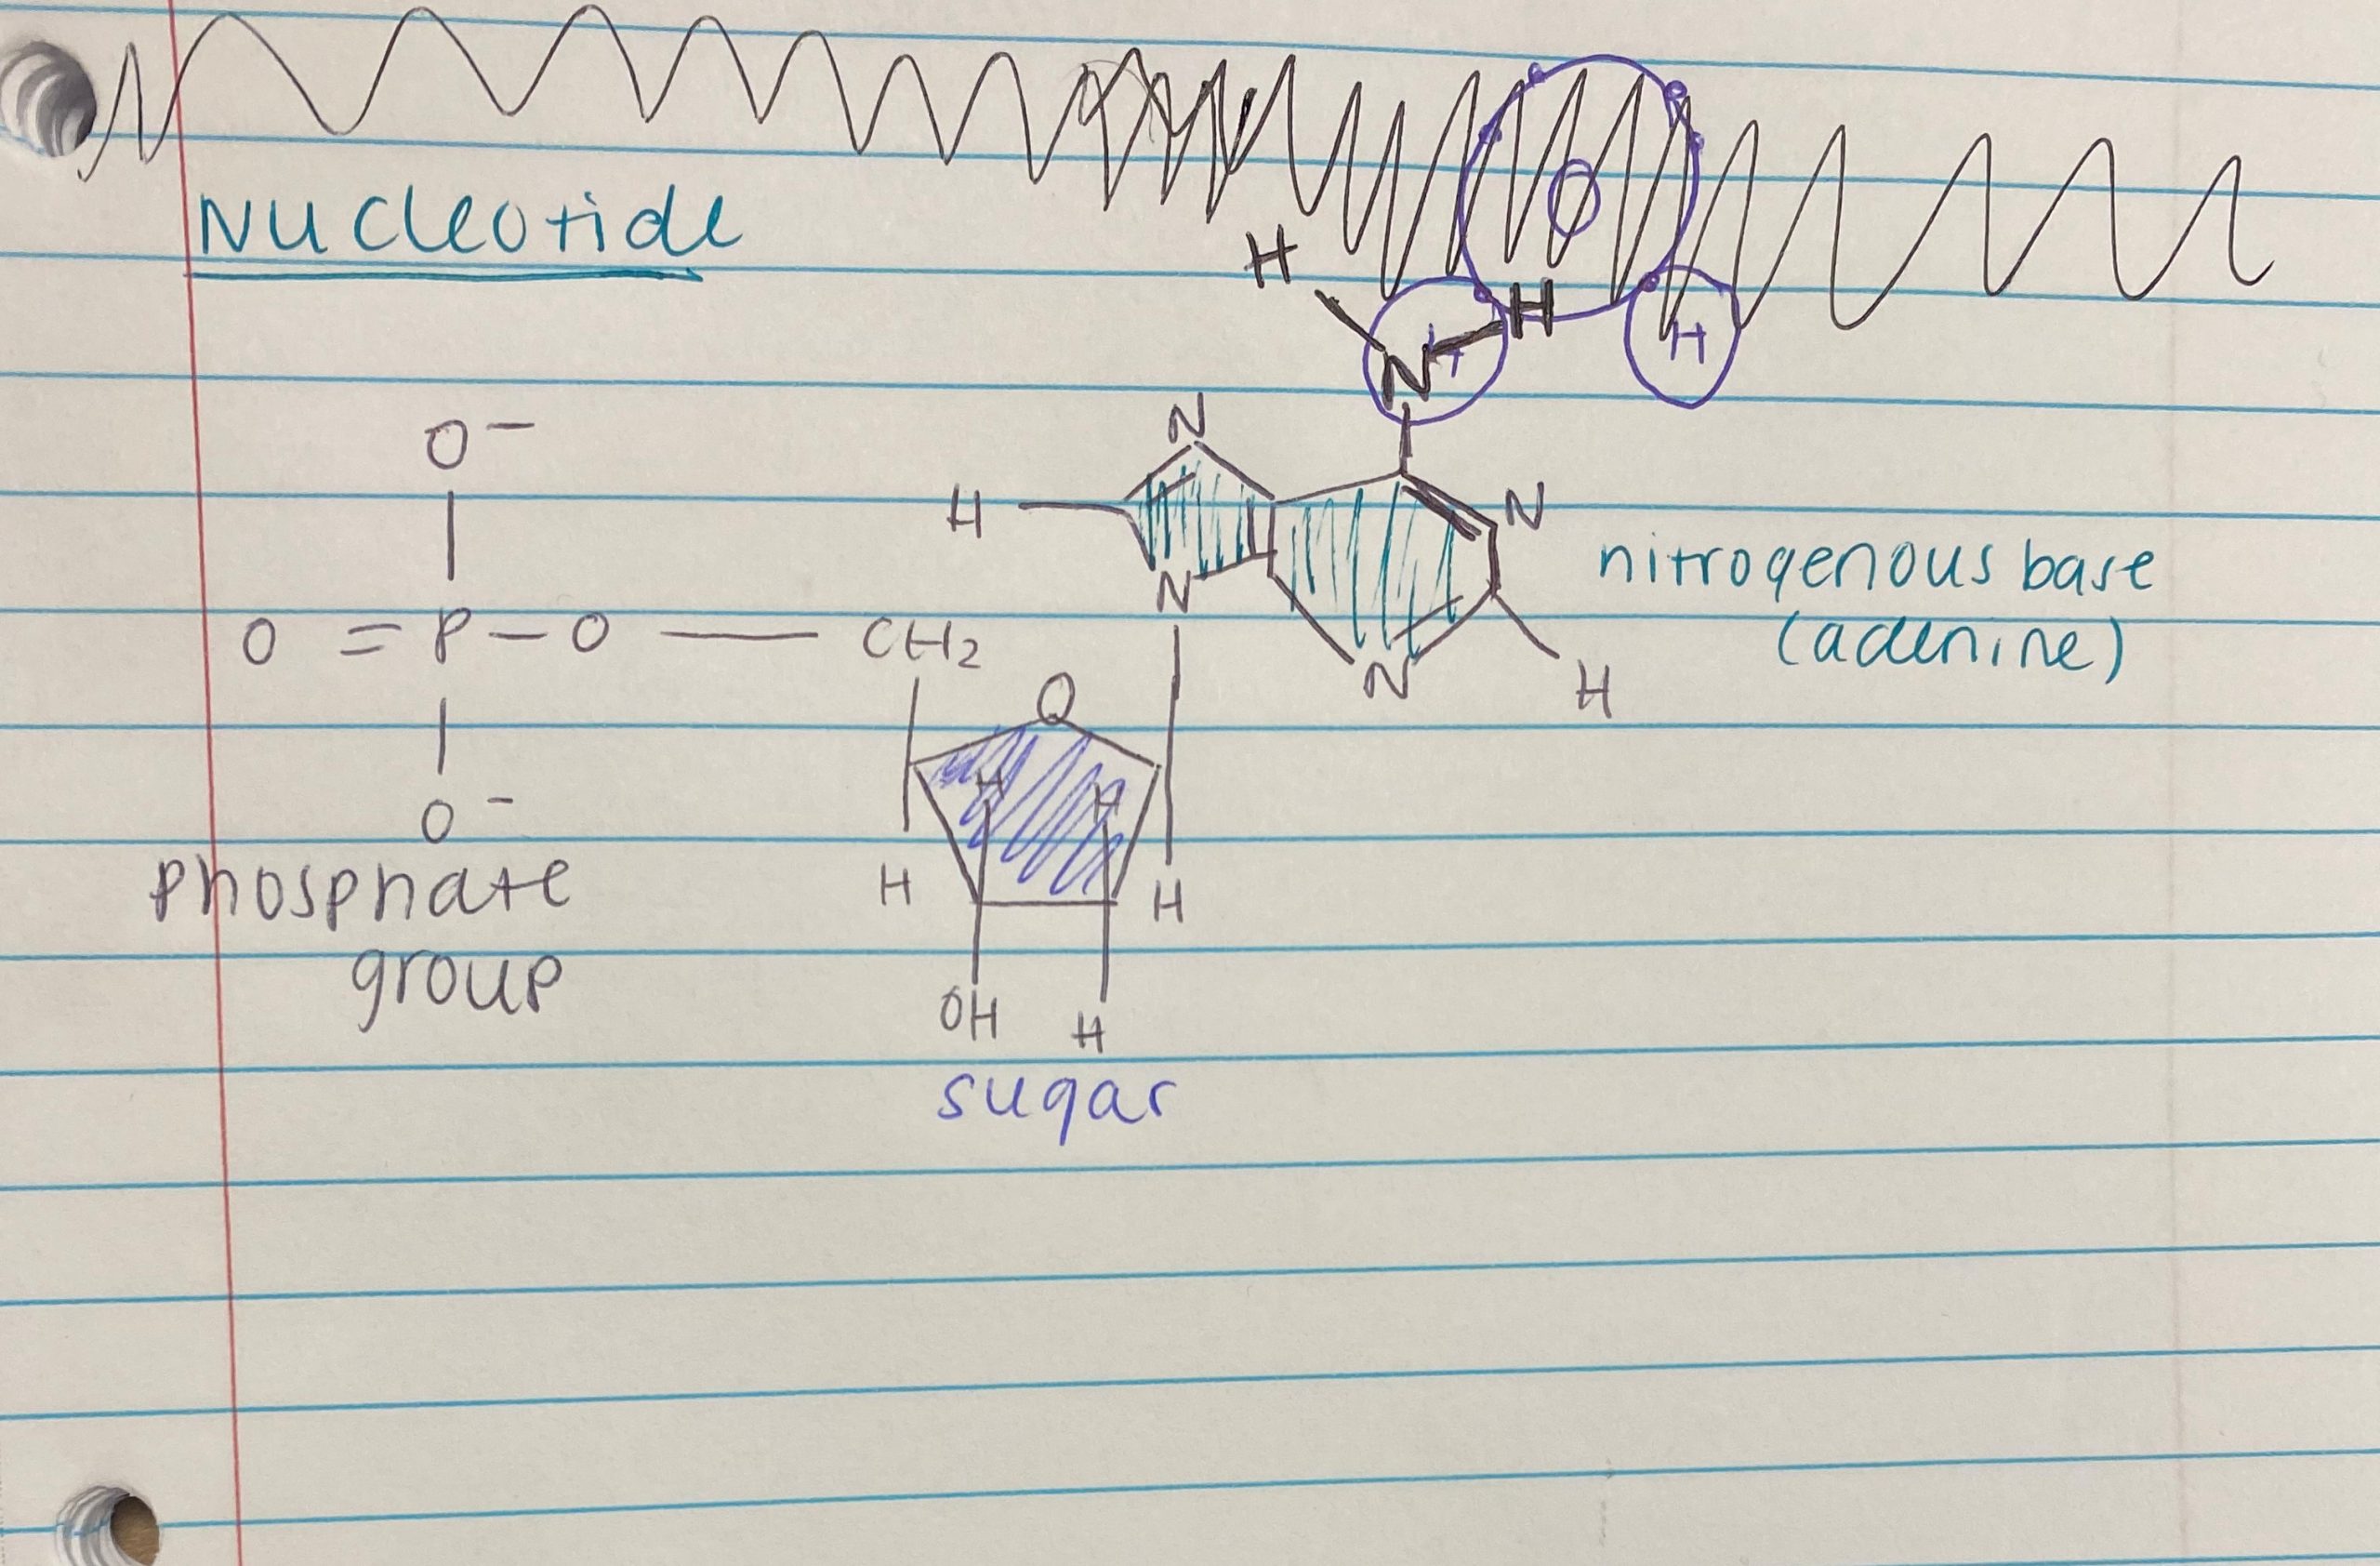 Nucleotide
O
H
H
H
N
H
O⁻
N
H
N
nitrogenous base
(adenine)
N
O = P - O — CH₂
N
H
O
H
H
O⁻
phosphate
group
H
H
OH
H
sugar